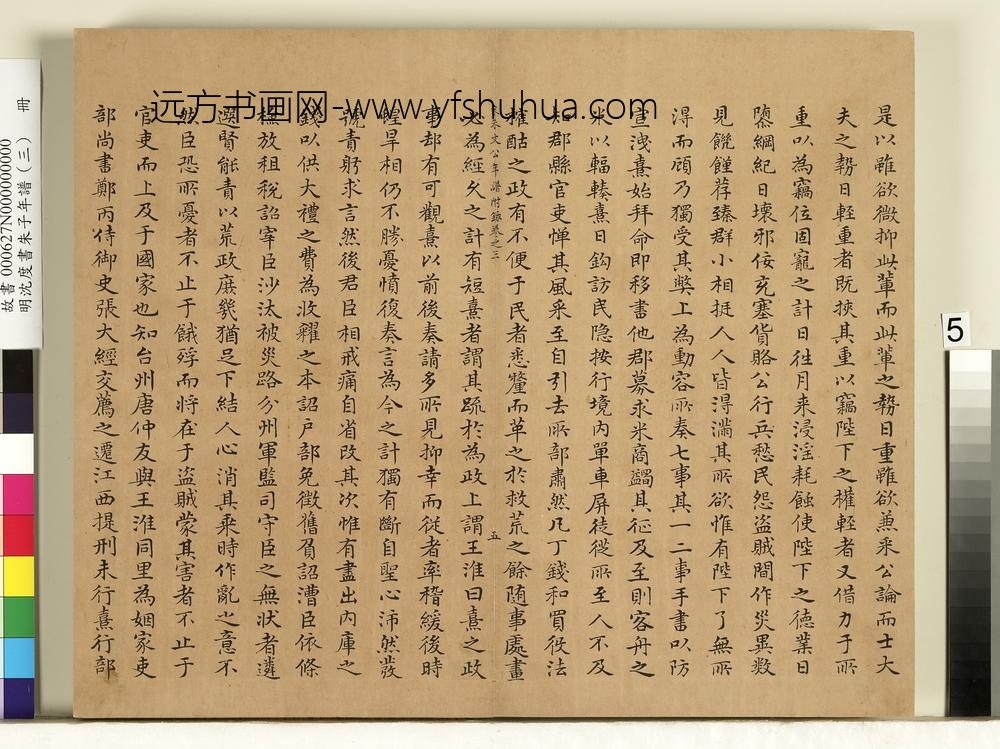 是以雖欲微抑此輩而此輩之勢日重雖欲兼采公論而士大
夫之勢日輕重者既挾其重以竊陛下之權輕者又借力于所
重以為竊位固寵之計日徃月来浸淫耗蝕使陛下之德業日
隳綱紀日壞邪佞充塞貨賂公行兵愁民怨盜賊間作災異數
見饑饉荐臻群小相挻人人皆淂滿其所欲惟有陛下了無所
淂而顧乃獨受其獘上為動容所奏七事其一二事手書以防
宣洩熹始拜命即移書他郡募求米商蠲其征及至則客舟之
米以輻輳熹日鈎訪民隐按行境内單車屏徒從所至人不及
知郡縣官吏憚其風采至自引去所部肅然凡丁錢和買役法
榷酤之政有不便于民者悉釐而革之於救荒之餘随事處畫
必為經久之計有短熹者謂其疏於為政上謂王淮曰熹之政
事却有可觀熹以前後奏請多所見抑幸而従者率稽緩後時
蝗旱相仍不勝憂憤復奏言為今之計獨有斷自聖心沛然發
號責躬求言然後君臣相戒痛自省改其次惟有盡出内庫之
錢以供大禮之費為收糴之本詔户部免徵舊負詔漕臣依條
檢放租稅詔宰臣沙汰被災路分州軍監司守臣之無狀者遴
選賢能責以荒政庶幾猶足下結人心消其乘時作亂之意不
然臣恐所憂者不止于餓殍而将在于盜賊蒙其害者不止于
官吏而上及于國家也知台州唐仲友與王淮同里為姻家吏
部尚書鄭丙侍御史張大經交薦之遷江西提刑未行熹行部
朱文公年譜附錄卷之三
五
远方书画网-www.yfshuhua.com
故書 000627N000000000
明沈度書朱子年譜(三) 冊
5